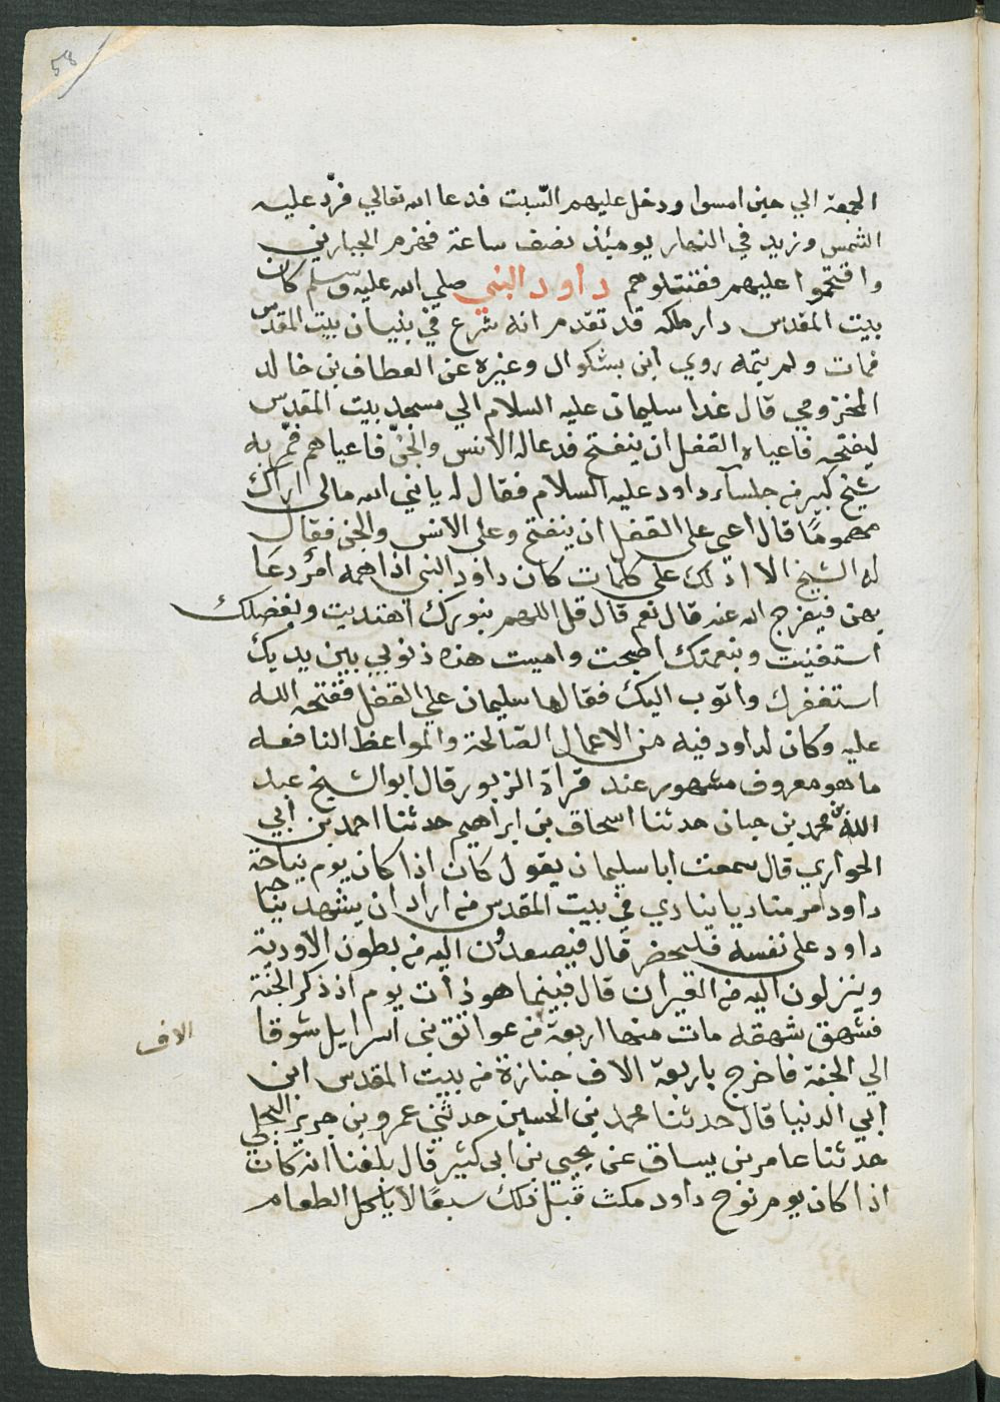 58
الجمعة الي حين امسوا ودخل عليهم السّبت فدعا الله تعالي فردّ عليه
الشمس وزيد في النهار يوميئذ نصف ساعة فهزم الجبارين
واقتحموا عليهم فقتلوهم داود النبي صلي الله عليه وسلم كان
بيت المقدس دار ملكه قد تقدم انه شرع في بنيان بيت المقدس
فمات ولم يتمه روي ابن بشكوال وغيره عن العطاف بن خالد
المخزومي قال غدا سليمان عليه السلام الي مسجد بيت المقدس
ليفتحه فاعياه القفل ان ينفتح فدعا له الانس والجنّ فاعياهم فمّر به
شيخ كبير من جلسآء داود عليه السلام فقال له يا نبي الله مالي اراك
مهمومًا قال اعيي علي القفل ان ينفتح وعلي الانس والجن فقال
له الشيخ الا ادلك علي كلمات كان داود النبي اذا همه امرٌ دعَا
بهن فيفرج الله عنه قال نعم قال قل اللهم بنورك اهتديت وبفضلك
استغنيت وبنعمتك اصبحت وامسيت هذه ذنوبي بين يديك
استغفرك واتوب اليك فقالها سليمان علي القفل ففتحه الله
عليه وكان لداود فيه من الاعمال الصّالحة والمواعظ النافعه
ما هو معروف مشهور عند قرأة الزبور قال ابو الشيخ عبد
الله بن محمد بن حبان حدثنا اسحاق بن ابراهيم حدثنا احمد بن ابي
الحواري قال سمعت ابا سليمان يقول كان اذا كان يوم نياحة
داود امر مناديا ينادي في بيت المقدس من اراد ان يشهد نياحة
داود علي نفسه فليحضر قال فيصعدون اليه من بطون الاودية
وينزلون اليه من الغيران قال فبينما هو ذات يوم اذ ذكر الجنّة
فشهق شهقه مات منها اربعة من عواتق بني اسرايل شوقا
الاف
الي الجنة فاخرج باربعة الاف جنازة من بيت المقدس ابن
ابي الدنيا قال حدثنا محمد بن الحسين حدثني عمرو بن جرير البجلي
حدثنا عامر بن يساق عن يحيي بن ابي كثير قال بلغنا انه كان
اذا كان يوم نوح داود مكث قبل ذلك سبعًا لا ياكل الطعام